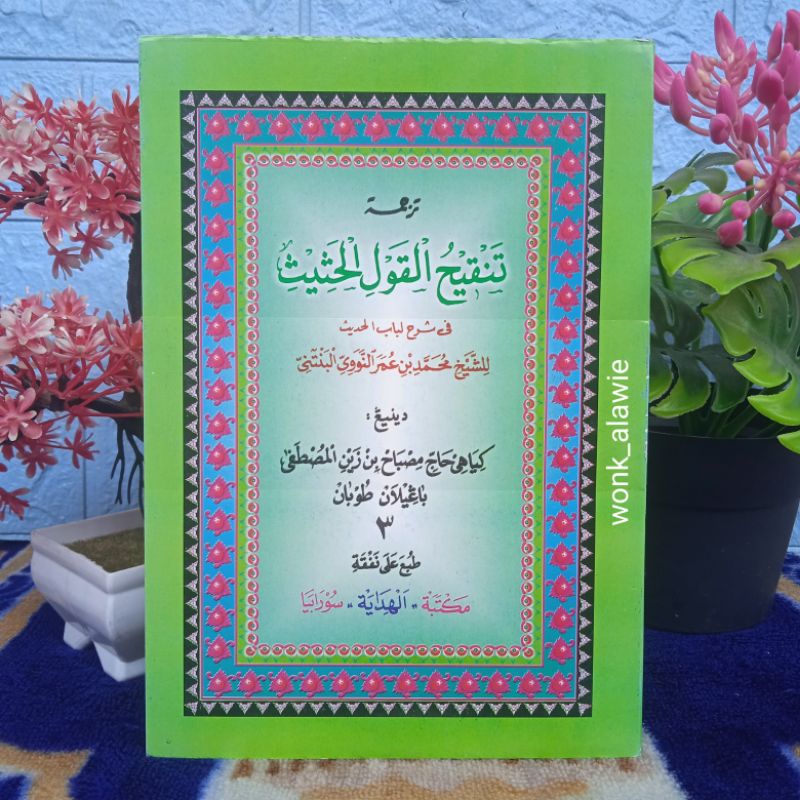 ترجمة
تَنْقِيْحُ الْقَوْلِ الْحَثِيْثِ
في شرح لباب الحديث
لِلشَّيْخِ مُحَمَّدِ بْنِ عُمَرَ النَّوَوِيِّ الْبَنْتَنِيّ
دينيڠ :
كِيَاهِيْ حَاجْ مِصْبَاحْ بِنْ زَيْنِ الْمُصْطَفَى
بَاڠْيْلَانْ طُوْبَانْ
٣
طُبِعَ عَلَى نَفَقَةِ
مَكْتَبَة = الْهِدَايَة = سُوْرَابَيَا
wonk_alawie